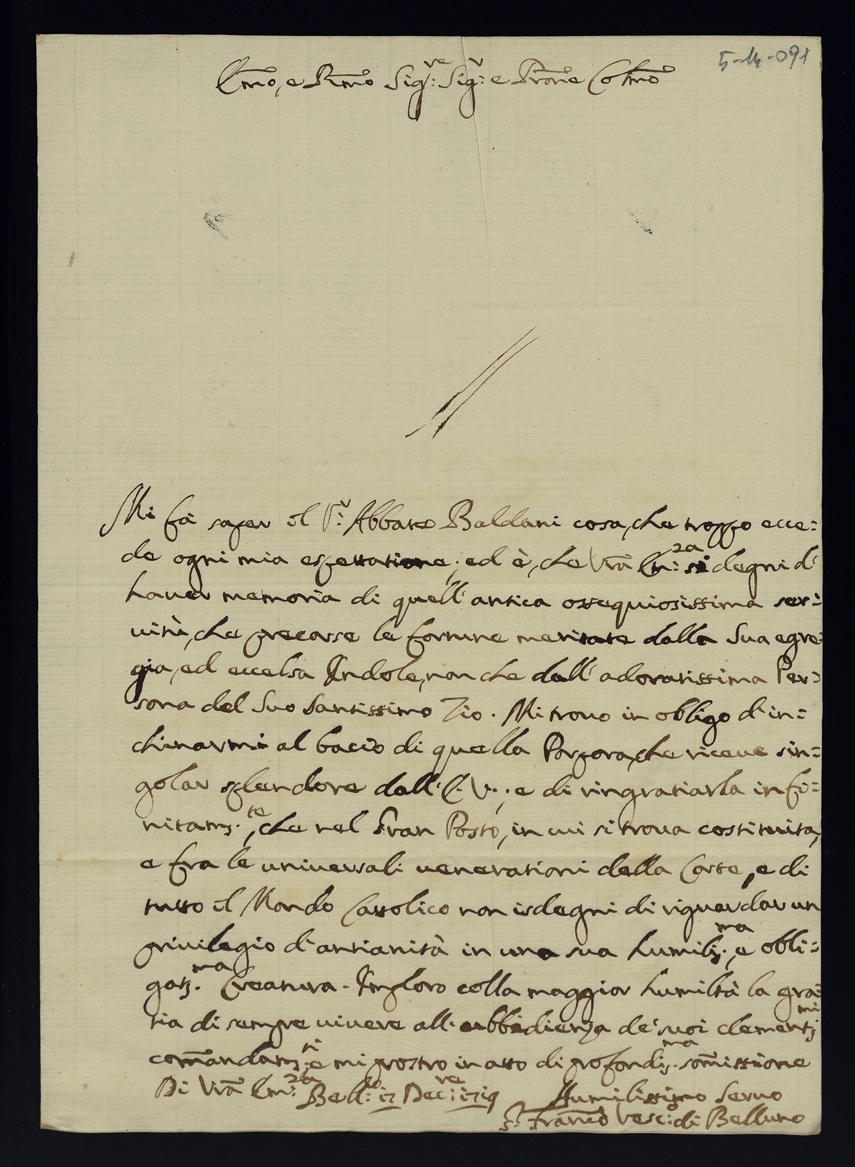 5-14-091
Em̃o, e Rm̃o Sig:re Sig:r e Prõne Colm̃o
Mi fà saper il S:r Abbate Baldani cosa, che troppo ecce:
de ogni mia espettatione; ed è, che Vrã Em:za si degni d'
haver memoria di quell'antica ossequiosissima ser:
vitù, che precorse le fortune meritate dalla Sua egre
gia, ed eccelsa Indole, non che dall'adoratissima Per:
sona del Suo Santissimo Zio. Mi trovo in obligo d'in:
chinarmi al bacio di quella Porpora, che riceve sin:
golar splendore dall'E. V.; e di ringratiarla infi:
nitam.te, che nel Gran Posto, in cui si trova costituita,
e fra le universali venerationi della Corte, e di
tutto il Mondo Cattolico non isdegni di riguardar un
privilegio d'antianità in una sua humiliss.ma, e obli:
gatiss.ma Creatura. Imploro colla maggior humiltà la gra:
tia di sempre vivere all'obbidienza de' suoi clementiss.mi
com̃andam.ti e mi prostro in atto di profondiss.ma som̃issione
Di Vrã Em:za Bell:o 17 Dec:re 1719
Humilissimo Servo
Franc̃o Vesc:o di Belluno